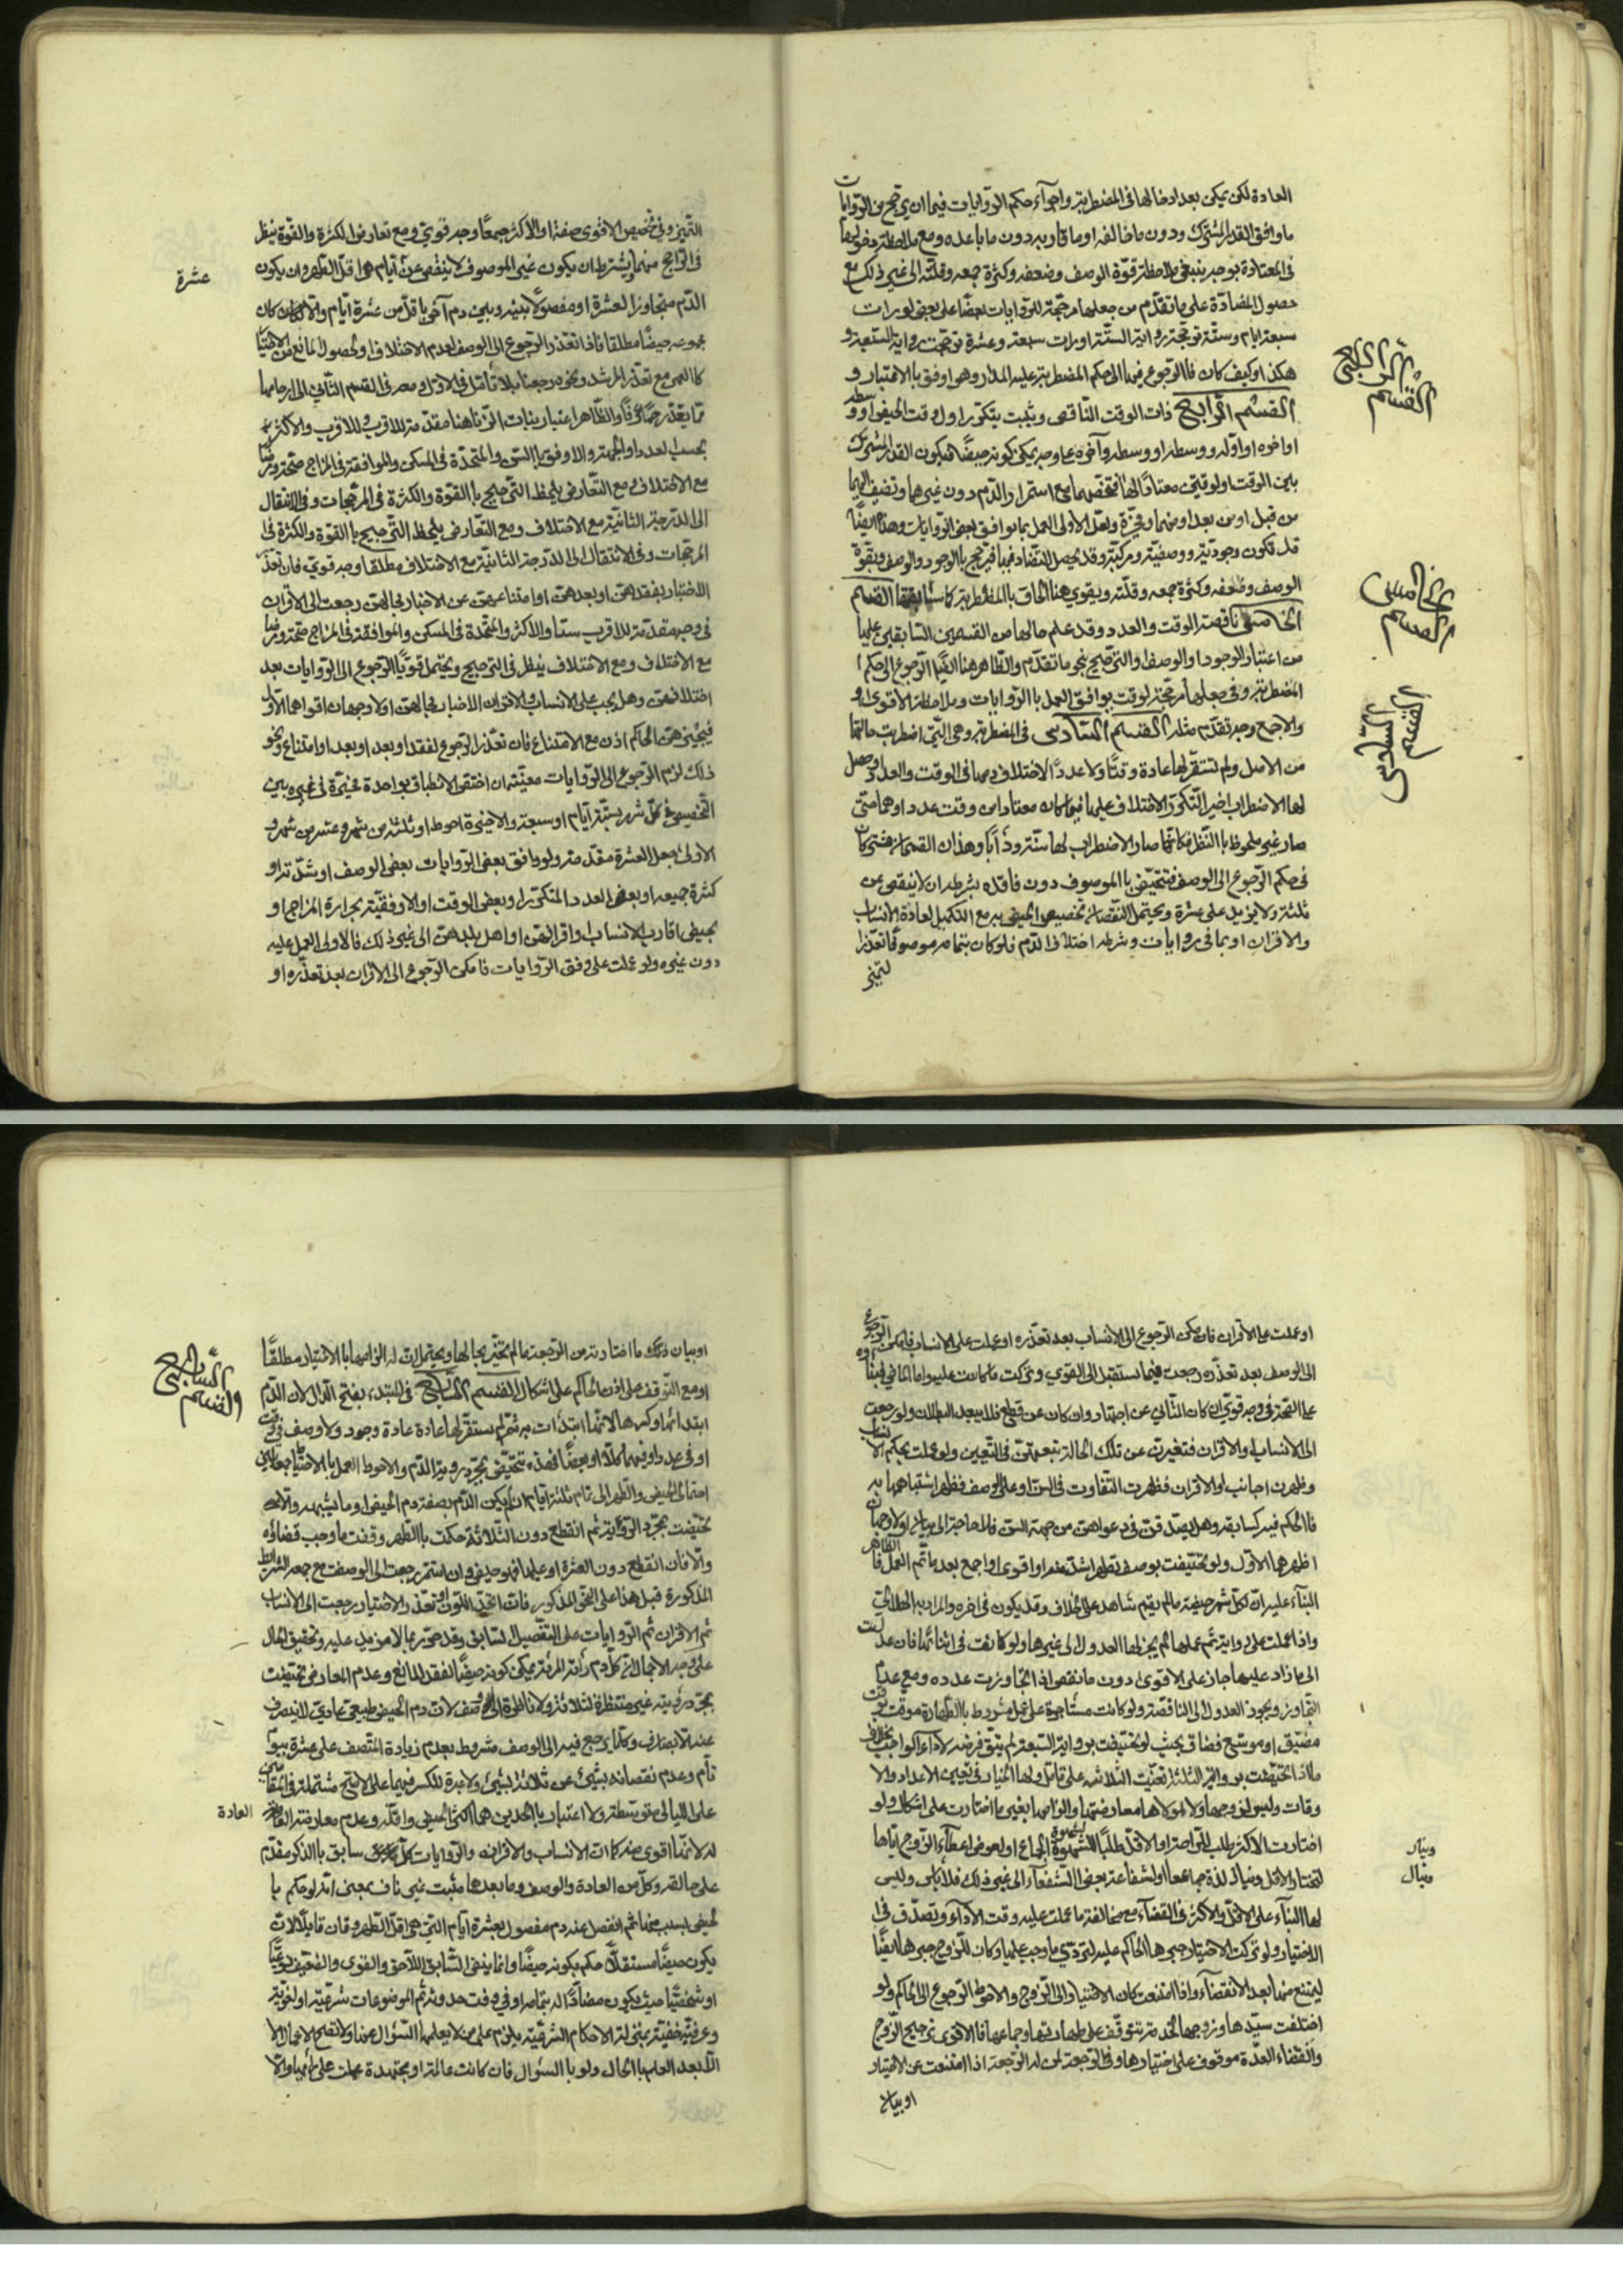 العادة لكن يمكن بعد ادخالها فى المضطربة واجرآء حكم الروايات فيها ان يرجح من الروايات
ما وافق القدر المشترك ودون ما خالفه او ما قاربه دون ما باعده ومع ملاحظة دخولها
فى المعتادة بوجه ينبغى ملاحظة قوّة الوصف وضعفه وكثرة جمعه وقلّته الى غير ذلك مع
حصول المضادّة على ما تقدّم من جعلها مرجّحة للروايات بعضها على بعض لو رات
سبعة ايام وستّة ترجحت رواية الستّة او رات سبعة وعشرة ترجحت رواية السبعة و
هكذا وكيف كان فالرجوع فيها الى حكم المضطربة عليه المدار وهو اوفق بالاعتبار و
القسم الرّابع ذات الوقت النّاقص ويثبت بتكرّر اول وقت الحيض او وسطه
او اخره او اوله ووسطه او وسطه وآخره على وجه يمكن كونه حيضًا فيكون القدر المشترك
بين الوقت او لوقتين معتادًا لها فتخصّهما مع استمرار الدّم دون غيرهما وتضيف اليهما
من قبل او من بعد او منهما مخيّرة ولعلّ الاولى العمل بما يوافق بعض الروايات وهذه ايضًا
قد تكون وجوديّة ووصفيّة ومركّبة وقد يحصل التضاد فيها فترجّح بالوجود والوصف وبقوّة
الوصف وضعفه وكثرة جمعه وقلّته ويقوى هنا الحاق بالمضطربة كسابقها القسم
الخامس ناقصة الوقت والعدد وقد علم حالها من القسمين السّابقين عليها
من اعتبار الوجود او الوصف والترجيح بنحو ما تقدّم والظّاهر هنا ايضًا الرجوع الى حكم
المضطربة وفى جعلها مرجّحة لوقت يوافق العمل بالروايات وملاحظة الاقوى او
والاجمع وجه تقدّم مثله القسم السّادس فى المضطربة وهى الّتى اضطربت حالتها
من الاصل ولم تستقرّ لها عادة وقتًا ولا عددًا لاختلاف دمها فى الوقت والعدد او حصل
لها الاضطراب اخيرًا لتكرّر الاختلاف عليها فيما كان معتادًا من وقت عدد او هما حتّى
صار غير ملحوظ بالنّظر فكانّما صار الاضطراب لها سنّة ودأبًا وهذان القسمان متى كان
فى حكم الرّجوع الى الوصف فتتحيّض بالموصوف دون فاقده بشرط ان لا ينقص عن
ثلثة ولا يزيد على عشرة ويحتمل النّقصان تخصيص الحيض به مع التّكميل لعادة الانساب
والاقران او بما فى روايات وشرط اختلاف الدّم فلو كان بتمامه موصوفًا تعذّر
التّميز
القسم الرّابع
القسم الخامس
القسم السّادس
التّميز وفى تخصيص الاقوى صفة او الاكثر جمعًا وجه قوىّ ومع تعارض الكثرة والقوّة ينظر
فى الرّاجح منهما ويشترط ان يكون غير الموصوف لا ينقص عن ايّام هى اقلّ الطّهر وان يكون
عشرة
الدّم متجاوز العشرة او مفصولًا بينه وبين دم آخر باقلّ من عشرة ايّام والّا كان
مجموعه حيضًا مطلقا فاذا تعذّر الرجوع الى الوصف لعدم الاختلاف او لحصول المانع من الاختبار
كالعمى مع تعذّر المرشد ونحوه رجعنا بلا تأمّل فى الاوّل ومعه فى القسم الثّانى الى ارحامها
مع الاختلاف ومع التّعارض يلحظ التّرجيح بالقوّة والكثرة فى المرجّحات وفى الانتقال
الى الدّرجة الثّانية مع الاختلاف ومع التّعارض يلحظ التّرجيح بالقوّة والكثرة فى
المرجّحات وفى الانتقال الى الدّرجة الثّانية مع الاختلاف مطلقا وجه قوىّ فان تعذّر
الاختبار بفقدهنّ او بعدهنّ او امتناعهنّ عن الاخبار بحالهنّ رجعت الى الاقران
مع الاختلاف ومع الاختلاف ينظر فى الترجيح ويحتمل قويًّا الرّجوع الى الروايات بعد
اختلافهنّ وهل يجب على الانساب والاقران الاخبار بحالهنّ اولا وجهان اقواهما الاوّل
فيجبرهنّ الحاكم اذن مع الامتناع فان تعذّر الرجوع لفقد او بعد او امتناع ونحو
ذلك لزم الرّجوع الى الروايات معيّنة ان اختصّ الانطباق بواحدة مخيّرة فى غيره بين
التّحيض فى كلّ شهر بستّة ايّام او سبعة والاخيرة احوط او ثلثة من شهر وعشر من شهر و
الاولى جعل العشرة مقدّمة ولو وافق بعض الروايات بعض الوصف او شدّته او
كثرة جمعه او بعض العدد المتكرّر او بعض الوقت او الاوفقيّة بحرارة المزاج او
بحيض اقارب الانساب او اقرانهنّ او اهل بلدهنّ الى غير ذلك فالاولى العمل عليه
دون غيره ولو عملت على وفق الروايات فامكن الرّجوع الى الاقران بعد تعذّره او
او عملت على الاقران فامكن الرّجوع الى الانساب بعد تعذّره او عملت على الانساب فامكن الرّجوع
الى الوصف بعد تعذّره رجعت فيما يستقبل الى القوىّ وتركت ما كانت عليه واما الماضى فيبنا
على الصّحة فى وجه قوىّ ان كان الثّانى عن اجتهاد وان كان عن قطع فلا يبعد البطلان ولو رجعت
الى الانساب او الاقران فتغيّرت عن تلك الحالة تبعتهنّ فى التّعيين ولو عملت بحكم الانساب
وظهرن اجانب او الاقران فظهرت التّفاوت فى السنّ او على الوصف فظهر اشتباهها به
فالحكم فيه كسابقه وهل يصدّقن فى دعواهنّ من جهة السنّ فلا حاجة الى بيان اولا وجهان
اظهرهما الاوّل ولو تحيّضت بوصف فظهر اشدّ منه او اقوى او اجمع بعد ما تمّ العمل فالظّاهر
البنآء عليه انّ لكلّ شهر حيضة مالم يقم شاهد على الخلاف وقد يكون فى اخره والمراد به الهلالى
واذا عملت على رواية ثمّ عملها لم يجز لها العدول الى غيرها ولو كانت فى اثنائها فان عدلت
الى ما زاد عليها جاز على الاقوى دون ما نقص اذا تجاوزت عدده ومع عدم
التّجاوز يجوز العدول الى الناقصة ولو كانت مستأجرة على عمل مشروط بالطّهارة موقّت بوقت
مضيّق او موسّع فضاق بحيث لو تحيّضت برواية السّبعة لم يبق فرصة لاداء الواجب بخلاف
ما اذا تحيّضت برواية الثلثة تعيّنت الثلاثة على تامّل ولها الخيار فى تعيين الاعداد والا
وقات وليس لزوجها ولا لمولاها معارضتها والزامها بغير ما اختارت على اشكال ولو
اختارت الاكثر طلبًا للرّاحة او الاقلّ طلبًا لشهوة الجماع او لعوض اعطآء الزّوج ايّاها
لتختار الاقلّ وينال لذّة جماعها او لشفاعة بعض الشّفعآء الى غير ذلك فلا باس وليس
وينار
وينال
لها البنآء على الاقلّ والاكثر فى القضآء مع مخالفة ما عملت عليه وقت الادآء وتصدّق فى
الاختيار ولو تركت الاختيار جبرها الحاكم عليه لتؤدّى ما وجب عليها وكان للزّوج جبرها ايضًا
ليمتنع منها بعد الانقضآء واذا امتنعت كان الاختيار الى الزّوج والاحوط الرّجوع الى الحاكم ولو
اختلفت سيّدها وزوجها لخدمة تتوقّف على طهارتها وجماعها فالاقوى ترجيح الزّوج
وانقضاء العدّة موقوف على اختيارها وفى الرّجعة لمن له الرّجعة اذا امتنعت عن الاختيار
او بيان
او بيان ذلك ما اختارته من الرّجعة مالم تخيّر بحالها ويحتمل انّ له الزامها بالاختيار مطلقًا
او مع التّوقّف على اذن الحاكم على اشكال القسم السّابع فى المبتدءة بفتح الدّال لانّ الدّم
القسم السّابع
ابتدائها وكسرها لانّها ابتدأت به ثمّ لم يستقرّ لها عادة عادة وجود ولا وصف فى وقت
او فى عدد او فيهما كلًّا او بعضًا فهذه تتحيّض بمجرّد رؤية الدّم والاحوط العمل بالاحتياط بجعلها بين
احتمالى الحيض والطّهر الى تمام ثلثة ايّام ان لم يكن الدّم بصفة دم الحيض او ما يشبهه والّا
تحيّضت بمجرّد الرؤية ثم انقطع دون الثّلاثة حكمت بالطّهر وقضت ما وجب قضاؤه
والّا فان انقطع دون العشرة او عليها فهو حيض وان استمر رجعت الى الوصف مع جمعه الشرايط
المذكورة قبل هذا على النّحو المذكور فان اتّحد اللّون او تعذّر الاختبار رجعت الى الانساب
ثم الاقران ثم الروايات على التّفصيل السّابق وقد حرّر بما لا مزيد عليه وتحقيق الحال
على وجه الاجمال انّ كلّ دم رأته المرأة يمكن كونه حيضًا لفقد المانع وعدم المعارض تحيّضت
بمجرّد رؤيته غير منتظرة لثلاثة ولا ناظرة الى وصف لانّ دم الحيض طبيعىّ عادىّ لا ينصرف
عنه الّا بصارف وكلّما يرجع فيه الى الوصف مشروط بعدم زيادة المتّصف على عشرة بيوم
تام وعدم نقصانه بشئ عن ثلاثة
على الليالى متوسّطة ولا اعتبار بالحدين هما اكثر الحيض واقلّه وعدم معارضة العادة
العادة
له لانّها اقوى منه كما انّ الانساب والاقران والروايات كلّ سابق بالذكر مقدّم
على حالقه وكلّ من العادة والوصف وما بعدها مثبت غير ناف بمعنى انّه لو حكم بالحيض
لحيض بسبب منها ثم انفصل عنه دم مفصول بعشرة ايّام الّتى هى اقلّ الطّهر وكان قابلًا لان
يكون حيضًا مستقلًّا حكم بكونه حيضًا وانما ينفى السّابق اللّاحق والقوى والضّعيف نوعيًّا
او شخصيًّا حيث يكون مضادًّا له بتمامه او فى وقت حدوثه ثم الموضوعات شرعيّة او لغويّة
وعرفيّة خفيّة بمنزلة الاحكام الشرعيّة يلزم على من لا يعلمها السّؤال عنها ولا تصحّ الاعمال
الّا بعد العلم بالحال ولو بالسّؤال فان كانت عالمة او مجتهدة عملت على رأيها والّا